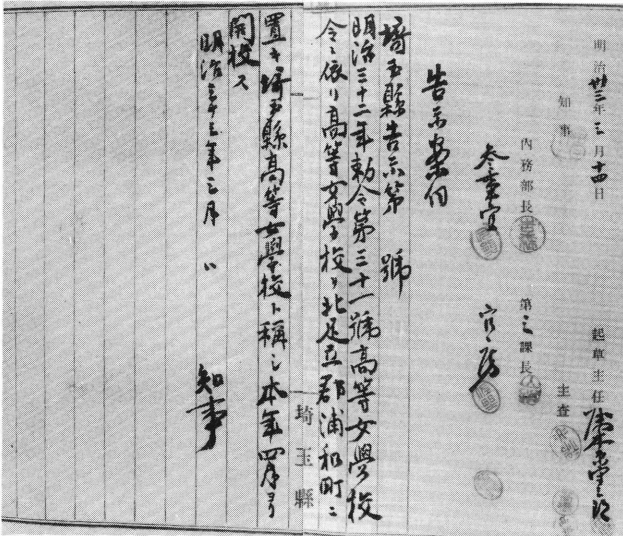 明治卅三年三月十四日
起草主任
知事
主査
内務部長
第三課長
参事官
告示案伺
埼玉縣告示第　號
明治三十二年勅令第三十一號高等女學校
令ニ依リ高等女學校ヲ北足立郡浦和町ニ
置キ埼玉縣高等女學校ト稱シ本年四月ヨリ
開校ス
明治三十三年三月　〃
知事
埼玉縣